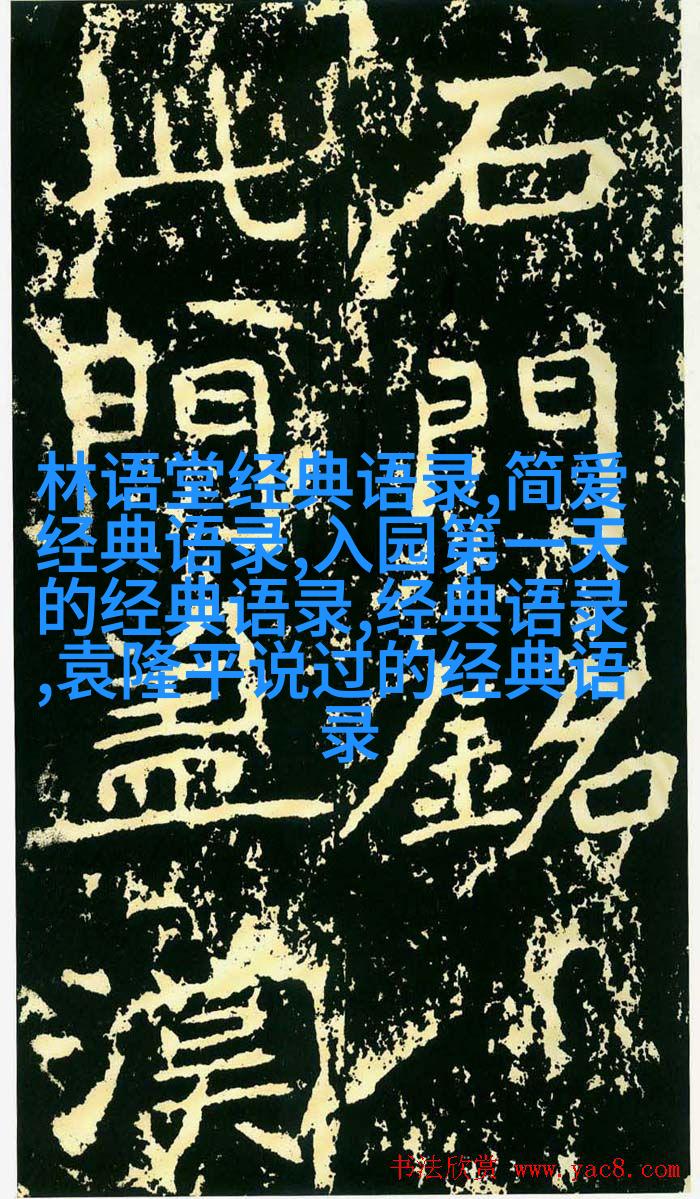 石門銘
此門蓋漢
林语堂经典语录,简爱
经典语录,入园第一天
的经典语录,经典语录
,袁隆平说过的经典语
录
书法欣赏 www.yac8.com